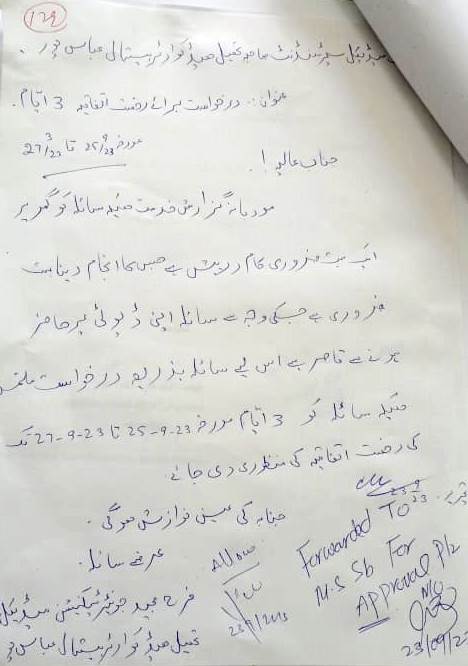 129
میڈیکل سپرنٹنڈنٹ صاحب تحصیل ہیڈ کوارٹر ہسپتال عباس پور
عنوان:۔ درخواست برائے رخصت اتفاقیہ 3 ایام۔
مورخہ 25/9/23 تا 27/9/23
جناب عالیہ!
مودبانہ گزارش خدمت ہیکہ سائلہ کو گھر پر
ایک بہت ضروری کام درپیش ہے جس کا انجام دینا بہت
ضروری ہے جسکی وجہ سے سائلہ اپنی ڈیوٹی پر حاضر
ہونے سے قاصر ہے اس لیے سائلہ بذریعہ درخواست ملتمس
ہیکہ سائلہ کو 3 ایام مورخہ 25-9-23 تا 27-9-23 تک
کی رخصت اتفاقیہ کی منظوری دی جائے۔
جناب کی عین نوازش ہوگی۔
عرضے سائلہ
فرح مجید جونیئر ٹیکنیشن میڈیکل
تحصیل ہیڈ کوارٹر ہسپتال عباس پور
Allow
23/9/2023
23/9/23
Forwarded To
M.S Sb For
Approval Plz
M/O
23/09/23